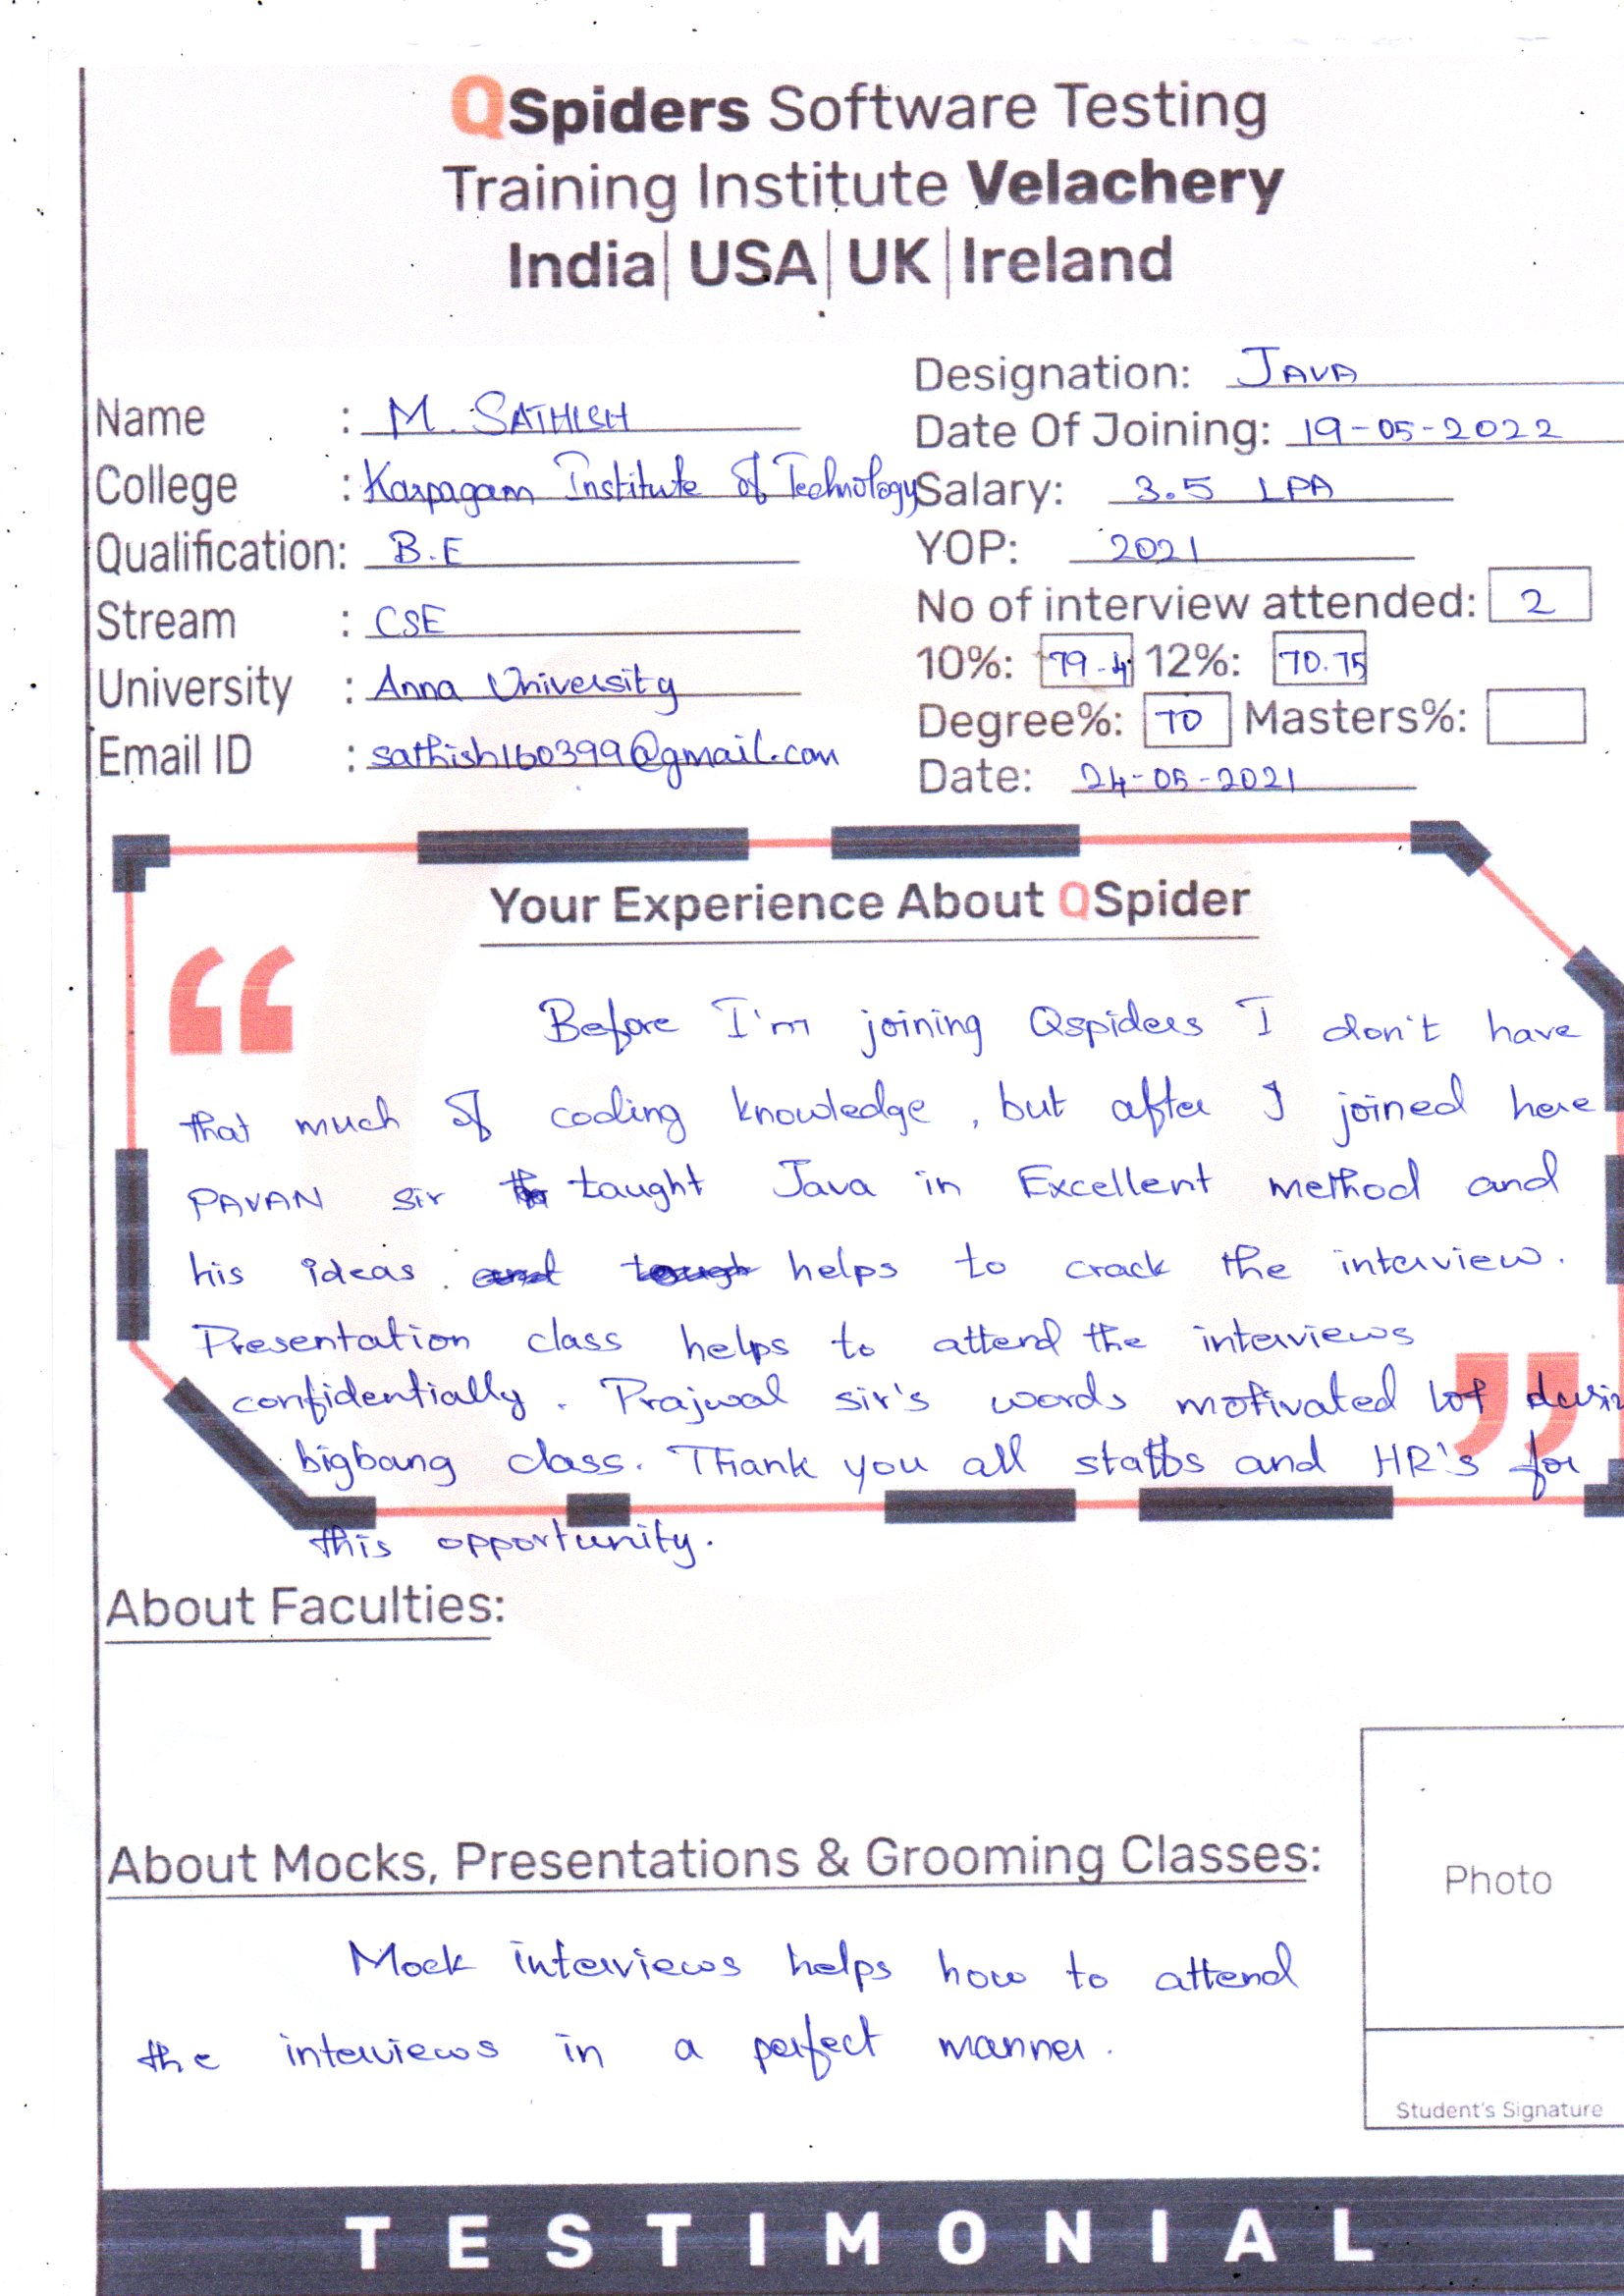 QSpiders Software Testing
Training Institute Velachery
India| USA| UK |Ireland
Name : M. SATHISH
College : Karpagam Institute of Technology
Qualification: B.E
Stream : CSE
University : Anna University
Email ID : sathish160399@gmail.com
Designation: JAVA
Date Of Joining: 19-05-2022
Salary: 3.5 LPA
YOP: 2021
No of interview attended: 2
10%: 79.4 12%: 70.75
Degree%: 70 Masters%:
Date: 24-05-2021
Your Experience About QSpider
“
Before I'm joining Qspiders I don't have
that much of coding knowledge, but after I joined here
PAVAN sir taught Java in Excellent method and
his ideas. and helps to crack the interview.
Presentation class helps to attend the interviews
confidentially. Prajwal sir's words motivated lot
bigbang class. Thank you all staffs and HR's for
”
this opportunity.
About Faculties:
About Mocks, Presentations & Grooming Classes:
Mock interviews helps how to attend
the interviews in a perfect manner.
Photo
Student's Signature
TESTIMONIAL